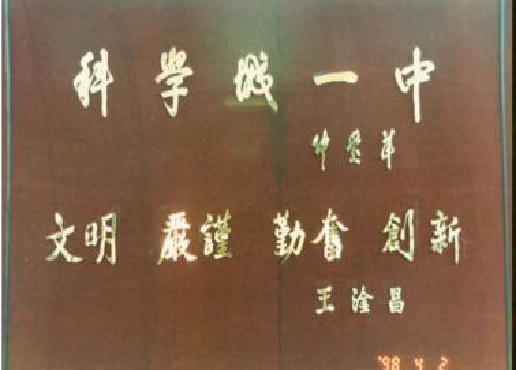 科學城一中
文明 嚴謹 勤奮 創新
王淦昌
'98 4 2